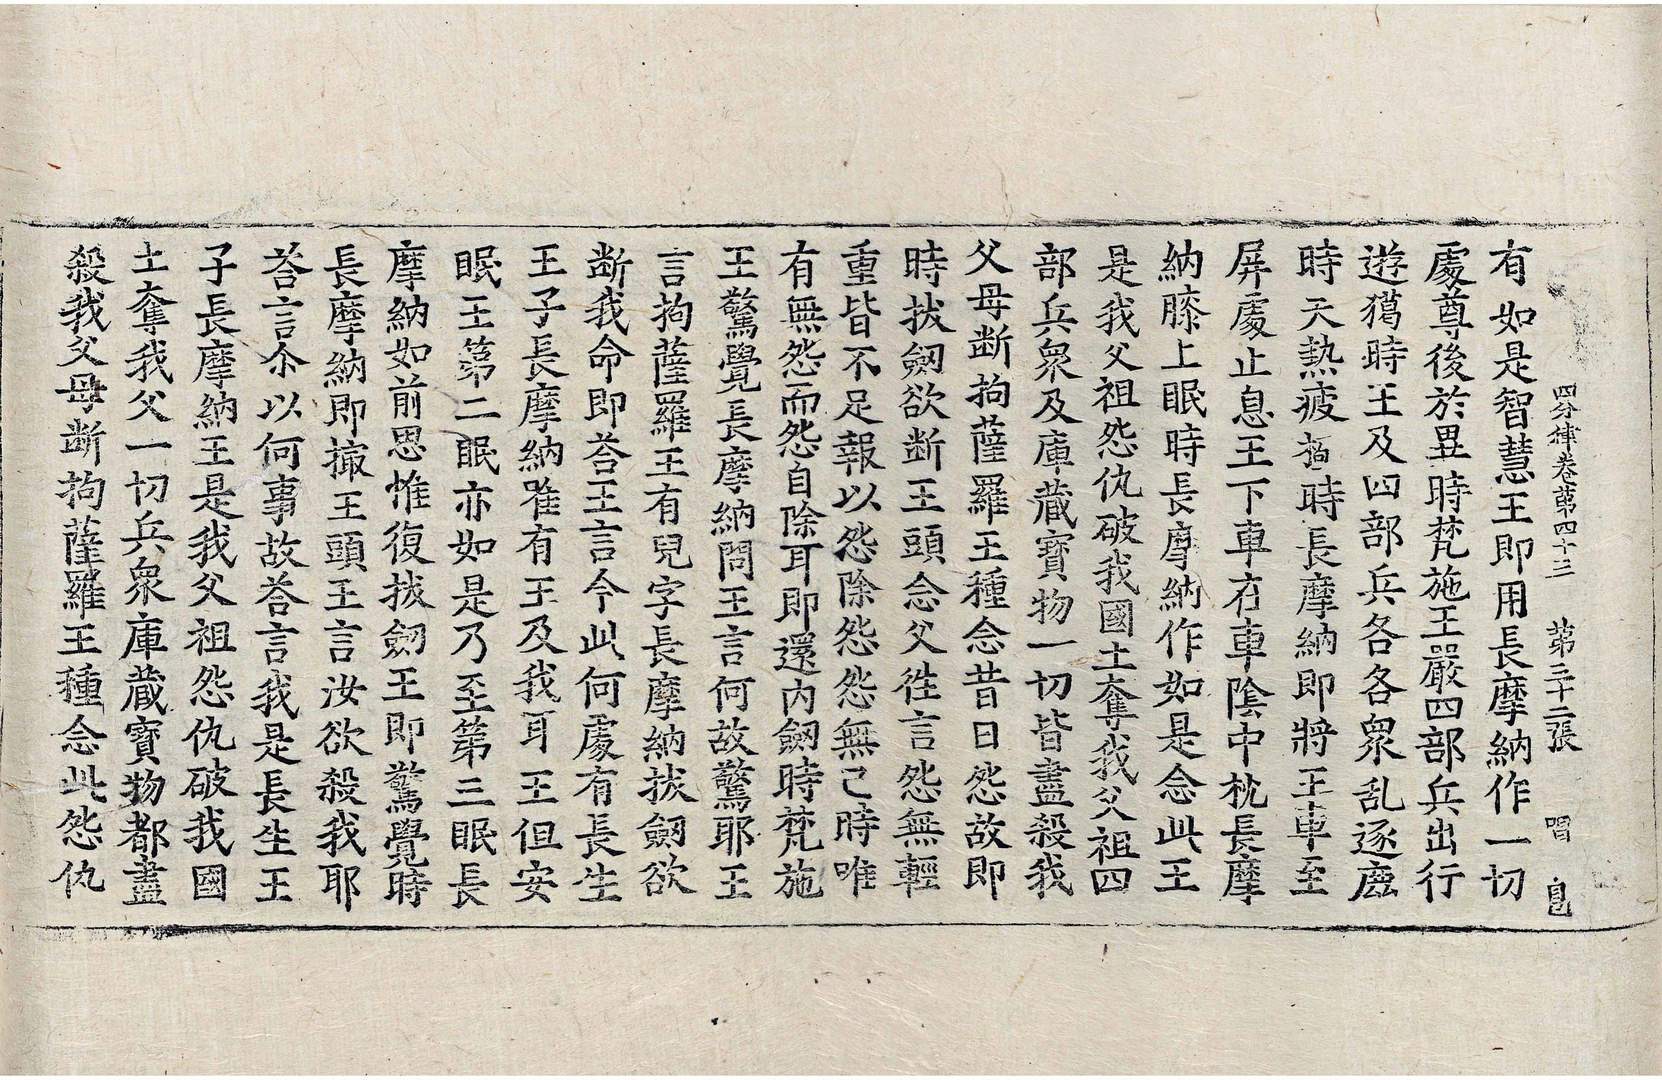 四分律卷第四十三　第三十二張　唱　自
有如是智慧王即用長摩納作一切
處尊後於異時梵施王嚴四部兵出行
遊獦時王及四部兵各各衆乱逐鹿
時天熱疲極時長摩納即將王車至
屏處止息王下車在車陰中枕長摩
納膝上眠時長摩納作如是念此王
是我父祖怨仇破我國土奪我父祖四
部兵衆及庫藏寶物一切皆盡殺我
父母断拘薩羅王種念昔日怨故即
時拔劔欲断王頭念父徃言怨無輕
重皆不足報以怨除怨怨無已時唯
有無怨而怨自除耳即還内劔時梵施
王驚覺長摩納問王言何故驚耶王
言拘薩羅王有兒字長摩納拔劔欲
断我命即荅王言今此何處有長生
王子長摩納唯有王及我耳王但安
眠王第二眠亦如是乃至第三眠長
摩納如前思惟復拔劔王即驚覺時
長摩納即撮王頭王言汝欲殺我耶
荅言尒以何事故荅言我是長生王
子長摩納王是我父祖怨仇破我國
土奪我父一切兵衆庫藏寶物都盡
殺我父母断拘薩羅王種念此怨仇